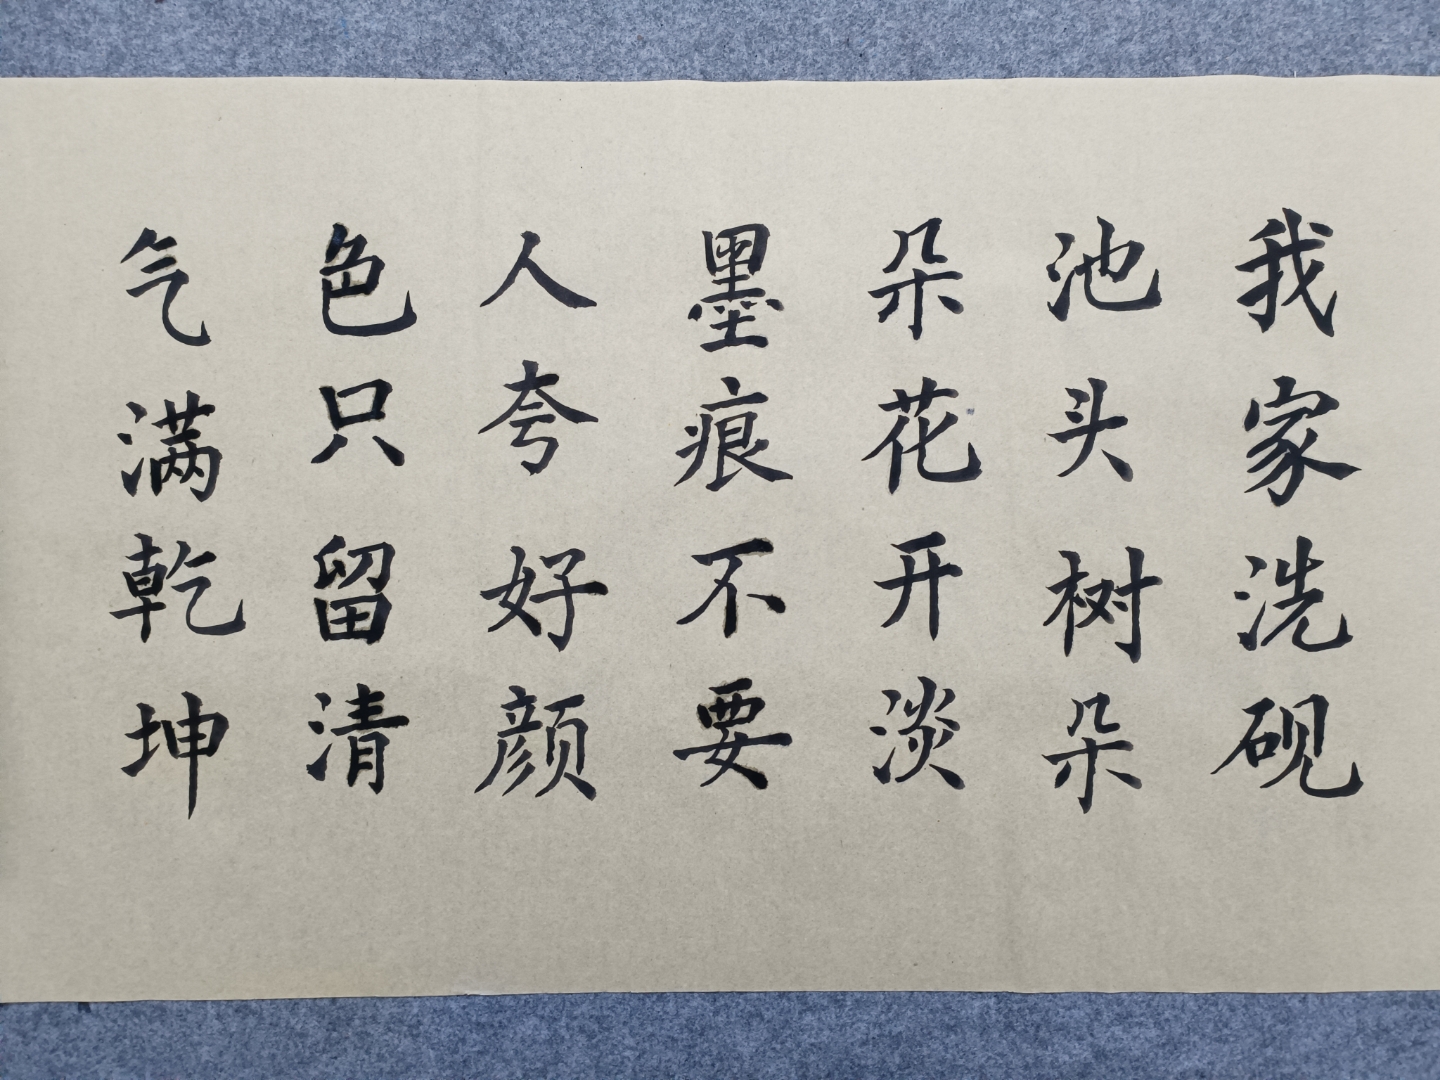 我家洗砚
池头树朵
朵花开淡
墨痕不要
人夸好颜
色只留清
气满乾坤